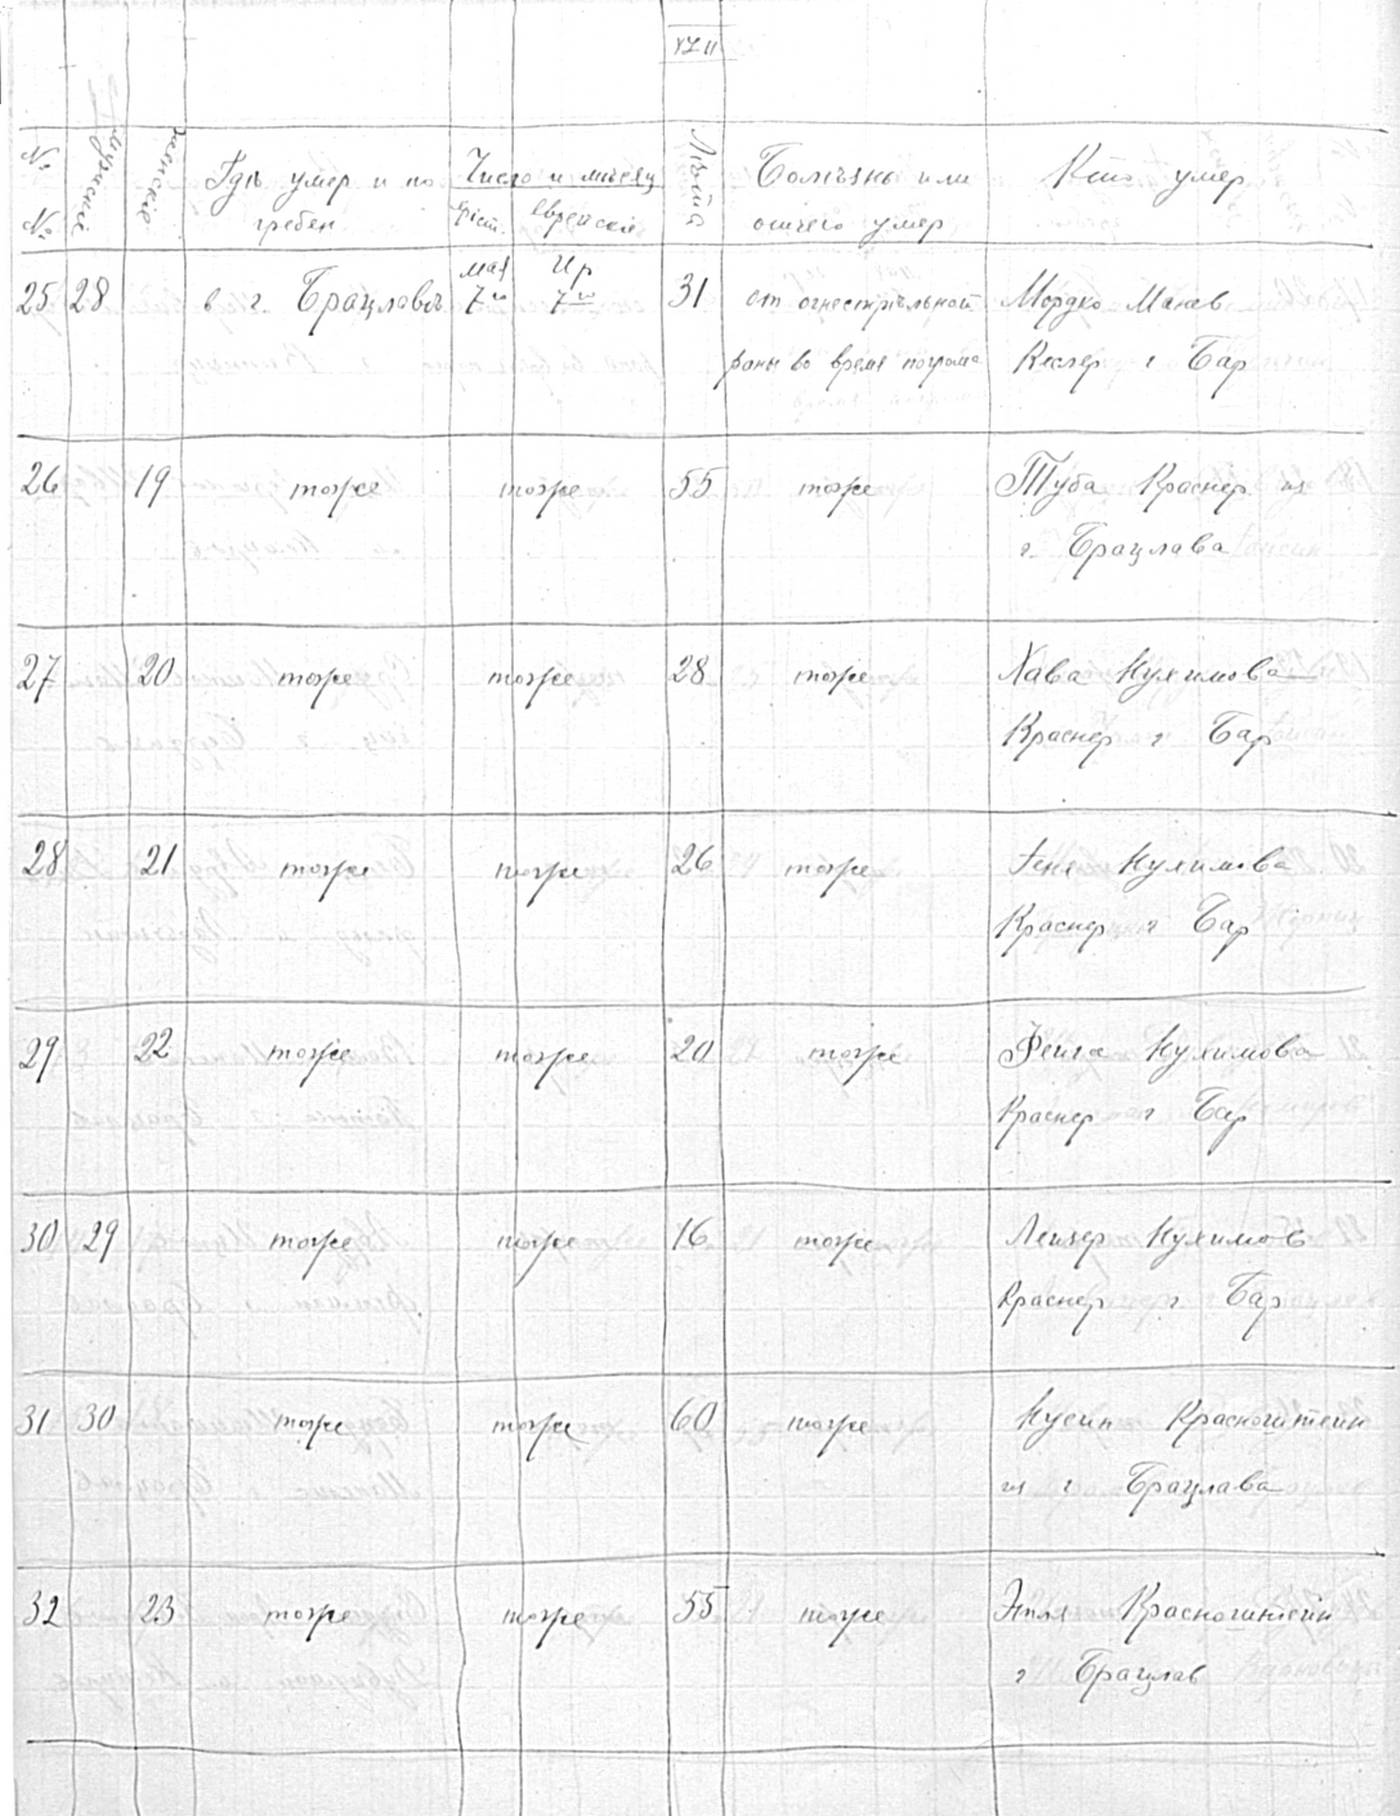 № №
мужскіе
женскіе
Гдѣ умер и по
гребен
Число и мѣсяц
Еврейскіе
Лѣта
Болѣзнь или
отчего умер
Кто умер
25 28 в г. Брацлавѣ мая 7го Ир 7го 31 от огнестрѣльной Мордко Манев
раны во время погрома Кеслер г Бар
26 19 тоже тоже 55 тоже Туба Краснер из
г. Брацлава
27 20 тоже тоже 28 тоже Хава Нухимова
Краснер г Бар
28 21 тоже тоже 26 тоже Геня Нухимова
Краснер г Бар
29 22 тоже тоже 20 тоже Фейга Нухимова
Краснер г Бар
30 29 тоже тоже 16 тоже Лейзер Нухимов
Краснер г Бар
31 30 тоже тоже 60 тоже Нусин Красноштейн
из г Брацлава
32 23 тоже тоже 55 тоже Этля Красноштейн
г Брацлав